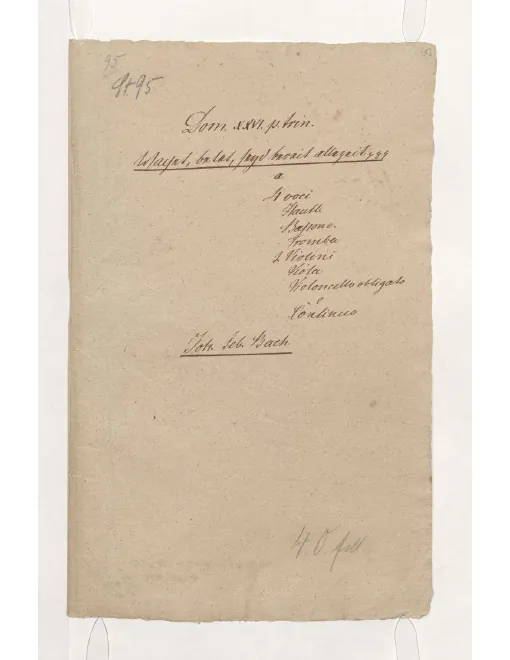 95
St 95
Dom. XXVI. p. trin.
Wachet, betet, seyd bereit allezeit
a
4 voci
Hautb.
Bassono.
Tromba
2 Violini
Viola
Violoncello obligato
e
Continuo
Joh. Seb. Bach.